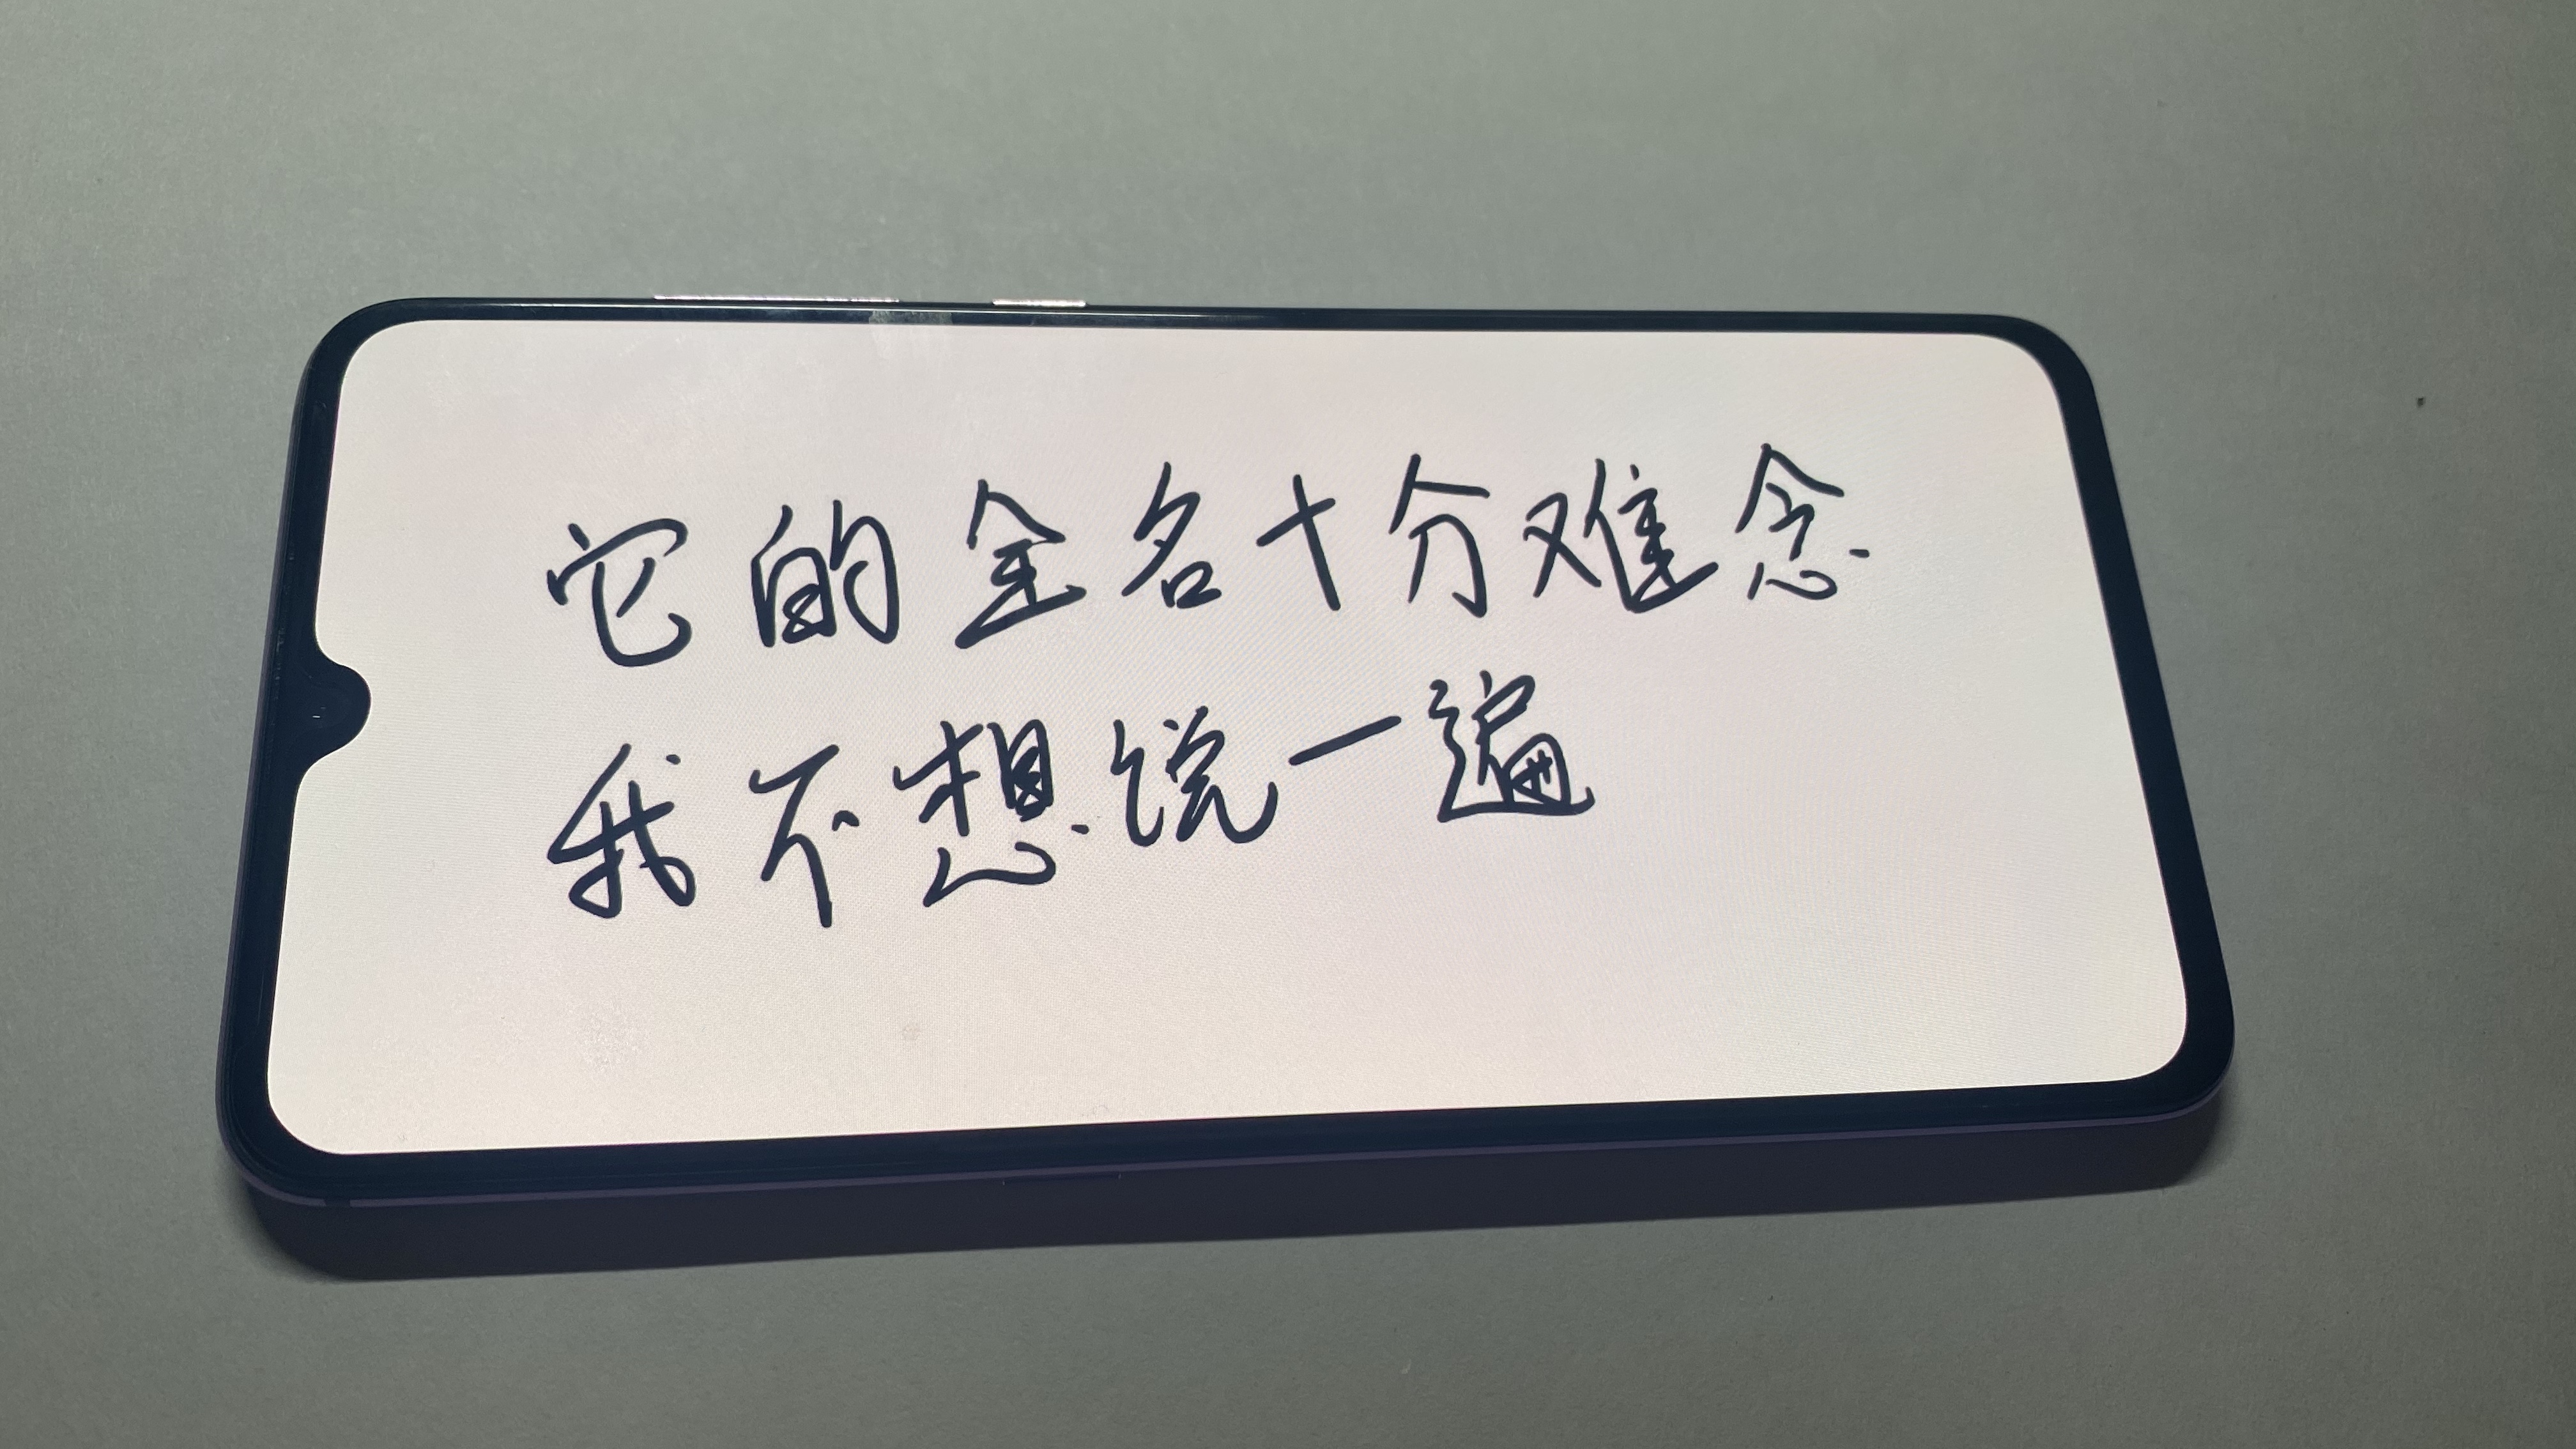 它的全名十分难念
我不想说一遍